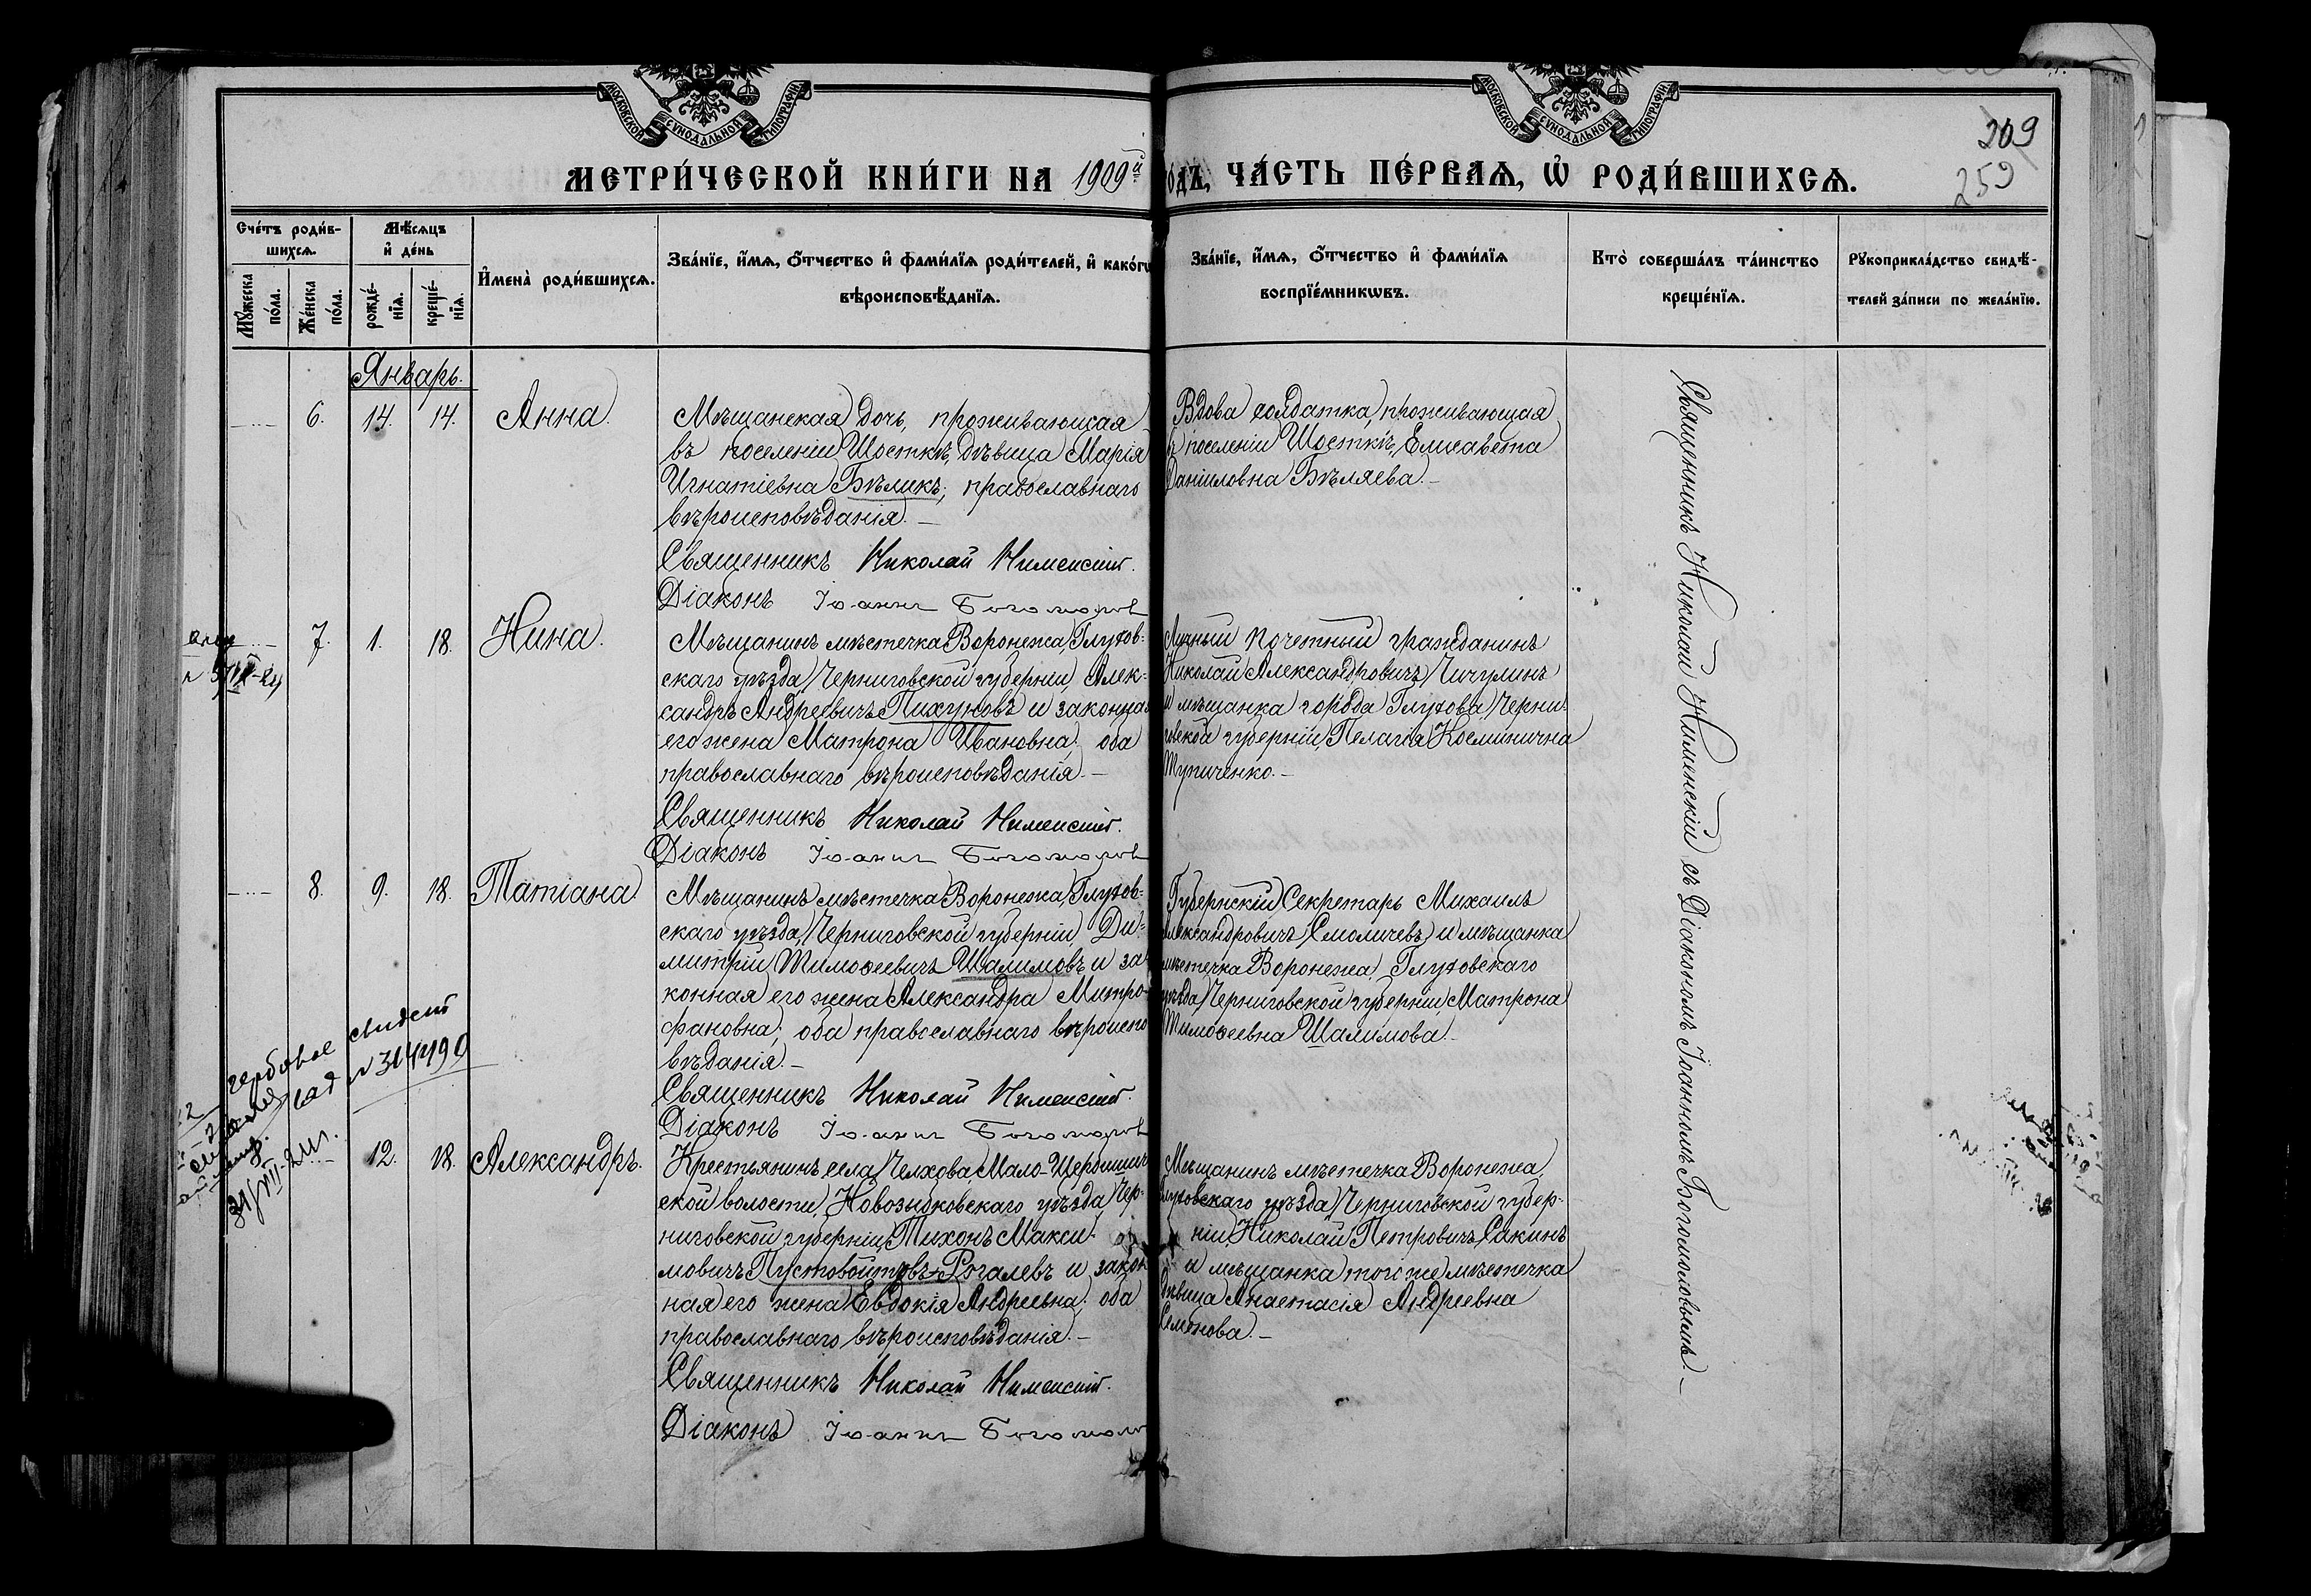 МОСКОВСКОЙ СѴНОДАЛЬНОЙ ТИПОГРАФІИ
МОСКОВСКОЙ СѴНОДАЛЬНОЙ ТИПОГРАФІИ
209
259
МЕТРИ́ЧЕСКОЙ КНИ́ГИ НА 1909й
о́дъ, ЧА́СТЬ ПЕ́РВАѦ, Ѽ РОДИ́ВШИХСѦ.
Сче́тъ роди́в-
шихсѧ.
Мꙋ́жеска по́ла.
Же́нска по́ла.
Мѣ́сѧцъ
и҆ де́нь
рожде́-
нїѧ.
креще́-
нїѧ.
И҆мена̀ роди́вшихсѧ.
Зва́нїе, и҆́мѧ, ѻ҆́тчество и҆ фами́лїѧ роди́телей, и҆ како́гѡ
вѣроисповѣ́данїѧ.
Зва́нїе, и҆́мѧ, ѻ҆́тчество и҆ фами́лїѧ
воспрїе́мникѡвъ.
Кто̀ соверша́лъ та́инство
креще́нїѧ.
Рꙋкоприкла́дство свидѣ́-
телей за́писи по жела́нїю.
Январь.
6. 14. 14. Анна.
Мѣщанская дочь, проживающая
въ поселеніи Шосткѣ, дѣвица Марія
Игнатіевна Бѣликъ, православнаго
вѣроисповѣданія. –
Священникъ Николай
Діаконъ Іоаннъ Богомолов
Вдова солдатка, проживающая
поселеніи Шосткѣ, Елисавета
Даніиловна Бѣляева. –
7. 1. 18. Нина.
Мѣщанинъ мѣстечка Воронежа, Глухов-
скаго уѣзда, Черниговской губерніи, Алек-
сандръ Андреевичъ Пихуновъ и законная
его жена Матрона Ивановна, оба
православнаго вѣроисповѣданія. –
Священникъ Николай
Діаконъ Іоаннъ Богомолов
Личный почетный гражданинъ
Николай Александровичъ Чигулинъ
и мѣщанка города Глухова, Черни-
говской губерніи, Пелагія Косминична
Тупиченко. –
8. 9. 18. Татіана.
Мѣщанинъ мѣстечка Воронежа, Глухов-
скаго уѣзда, Черниговской губерніи, Ди-
митрій Тимоѳеевичъ Шалимовъ и за-
конная его жена Александра Митро-
фановна, оба православнаго вѣроиспо-
вѣданія. –
Священникъ Николай
Діаконъ Іоаннъ Богомолов
Губернскій Секретарь Михаилъ
Александровичъ Смоличевъ и мѣщанка
мѣстечка Воронежа, Глуховскаго
уѣзда, Черниговской губерніи, Матрона
Тимоѳеевна Шалимова. –
гербовое
№ 314490
12. 18. Александръ.
Крестьянинъ села Челхова, Мало-Щербинич-
ской волости, Новозыбковскаго уѣзда, Чер-
ниговской губерніи, Тихонъ Макси-
мовичъ Пустовойтовъ-Рогалевъ и закон-
ная его жена Евдокія Андреевна, оба
православнаго вѣроисповѣданія. –
Священникъ Николай
Діаконъ Іоаннъ Богомолов
Мѣщанинъ мѣстечка Воронежа,
Глуховскаго уѣзда, Черниговской губер-
ніи, Николай Петровичъ Сакинъ
и мѣщанка того же мѣстечка
дѣвица Анастасія Андреевна
Семенова. –
Священникъ Николай Нименскій съ Діакономъ Іоанномъ Богомоловымъ. –